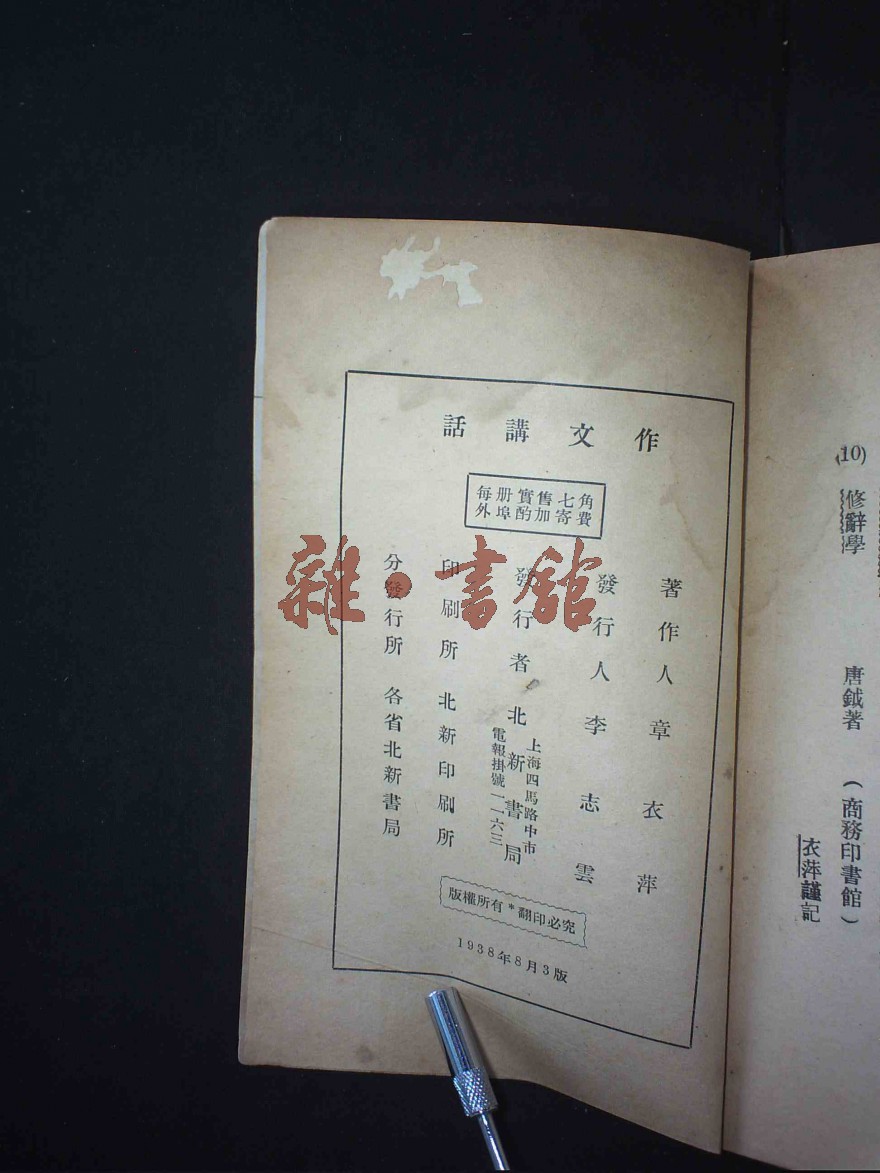 (10) 修辭學 唐鉞著 (商務印書館)
衣萍謹記
作文講話
每册實售七角
外埠酌加寄費
著作人 章衣萍
發行人 李志雲
發行者 北新書局
上海四馬路中市
電報掛號一一六三
印刷所 北新印刷所
分發行所 各省北新書局
版權所有*翻印必究
1938年8月3版
雜·書館